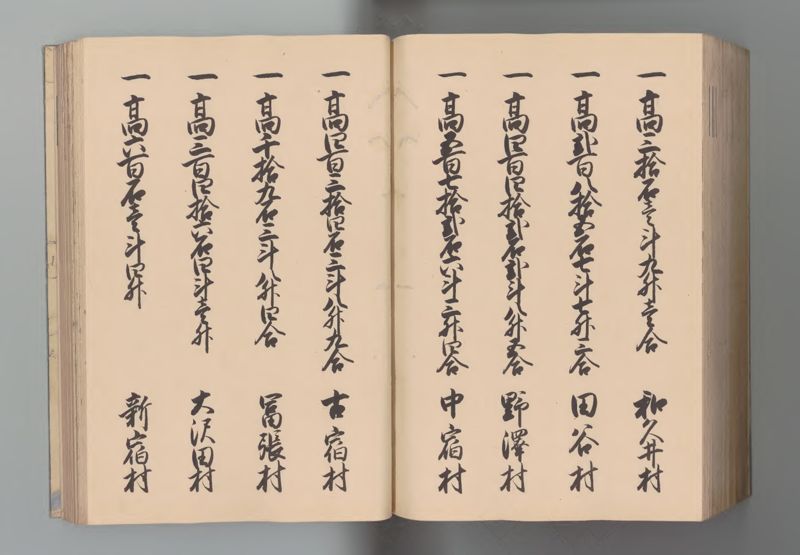 一高三拾石壱斗九升壱合 和久井村
一高弐百八拾五石七斗七升三合 田谷村
一高四百四拾弐石弐斗八升五合 野澤村
一高五百七拾弐石六斗三升四合 中宿村
一高四百三拾四石三斗八升九合 古宿村
一高千拾九石三斗八升四合 冨張村
一高三百四拾六石四斗壱升 大沢田村
一高六百石壱斗四升 新宿村